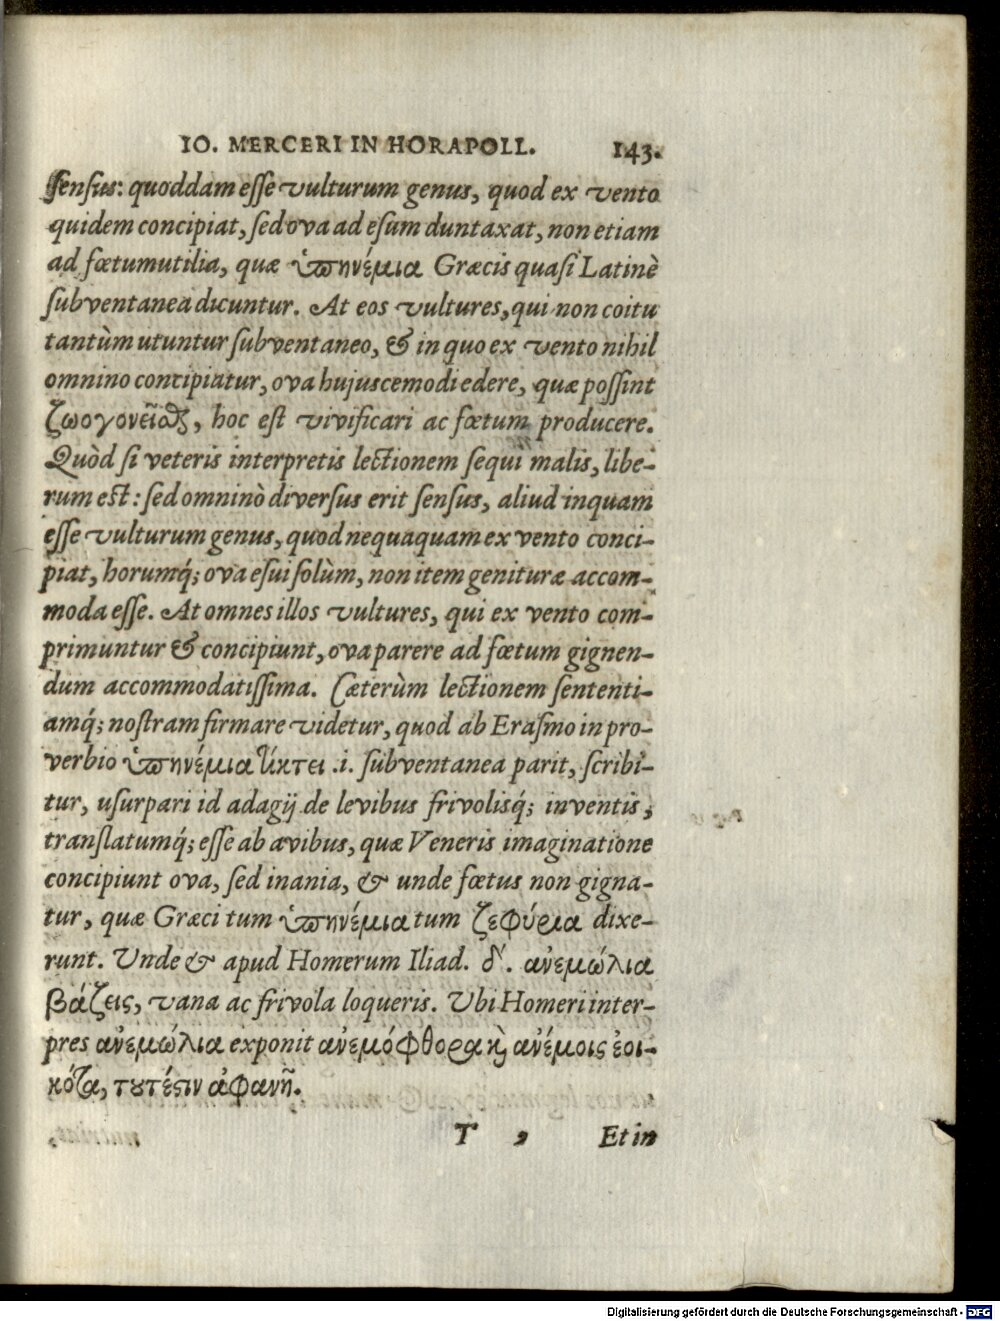 IO. MERCERI IN HORAPOLL. 143.
ſenſus: quoddam eſſe vulturum genus, quod ex vento
quidem concipiat, ſed ova ad eſum duntaxat, non etiam
ad fœtum utilia, quæ ὑπηνέμια Græcis quaſi Latinè
ſubventanea dicuntur. At eos vultures, qui non coitu
tantùm utuntur ſubventaneo, & in quo ex vento nihil
omnino concipiatur, ova hujuscemodi edere, quæ poſſint
ζωογονεῖσθαι, hoc eſt vivificari ac fœtum producere.
Quòd ſi veteris interpretis lectionem ſequi malis, libe-
rum eſt: ſed omninò diverſus erit ſenſus, aliud inquam
eſſe vulturum genus, quod nequaquam ex vento conci-
piat, horumq́; ova eſui ſolùm, non item genituræ accom-
moda eſſe. At omnes illos vultures, qui ex vento com-
primuntur & concipiunt, ova parere ad fœtum gignen-
dum accommodatiſſima. Cæterùm lectionem ſententi-
amq́; noſtram firmare videtur, quod ab Eraſmo in pro-
verbio ὑπηνέμια τίκτει .i. ſubventanea parit, ſcribi-
tur, uſurpari id adagij de levibus frivolisq́; inventis,
translatumq́; eſſe ab avibus, quæ Veneris imaginatione
concipiunt ova, ſed inania, & unde fœtus non gigna-
tur, quæ Græci tum ὑπηνέμια tum ζεφύρια dixe-
runt. Unde & apud Homerum Iliad. δ'. ἀνεμώλια
βάζεις, vana ac frivola loqueris. Ubi Homeri inter-
pres ἀνεμώλια exponit ἀνεμόφθορα ϗ̀ ἀνέμοις ἐοι-
κότα, τȣτέϛιν ἀφανῆ.
T , Et in
Digitalisierung gefördert durch die Deutsche Forschungsgemeinschaft - DFG